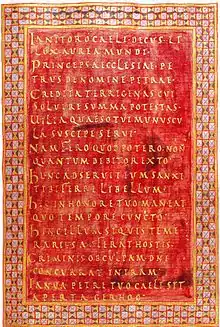 IANITOR O CAELI DECUS LU
LUX AUREA MUNDI
PRINCEPS AECCLESIAE PE
TRUS DE NOMINE PETRAE
CREDITA TERRIGENAS CUI
SOLUERE SUMMA POTESTAS
UILIA QUAESO TUI MUNUSCU
LA SUSCIPE SERUI
NAM FERO QUOD POTERO NON
QUANTUM DEBITOR EXTO
HUNC AD SERUITIUM SANXI
TIBI FERRE LIBELLUM
HIC IN HONORE TUO MANEAT
QUO TEMPORE CUNCTO
HINC ILLUM SI QUIS TEME
RARIE HOSTIS
CRIMINIS OB CULPAM DNI
CONCURRAT IN IRAM
IANUA PETRE TUO CAELI SIT
APERTA GERHOO